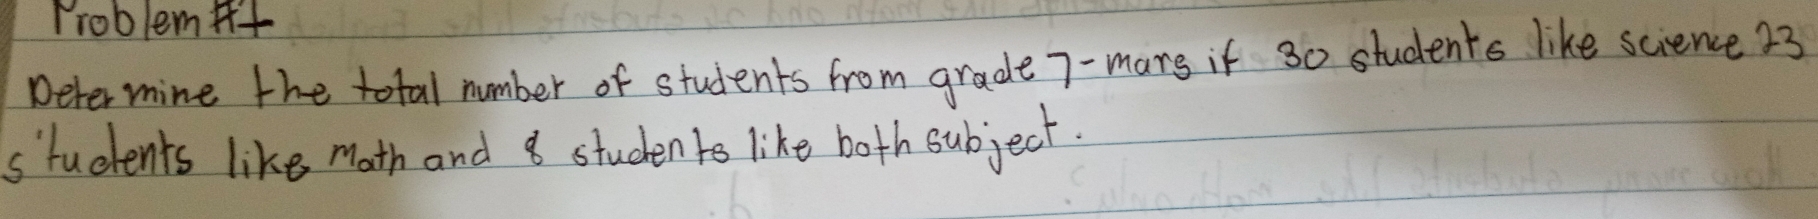 Problem #1
Determine the total number of students from grade 7-mars if 30 students like science 23
students like math and 8 students like both subject.